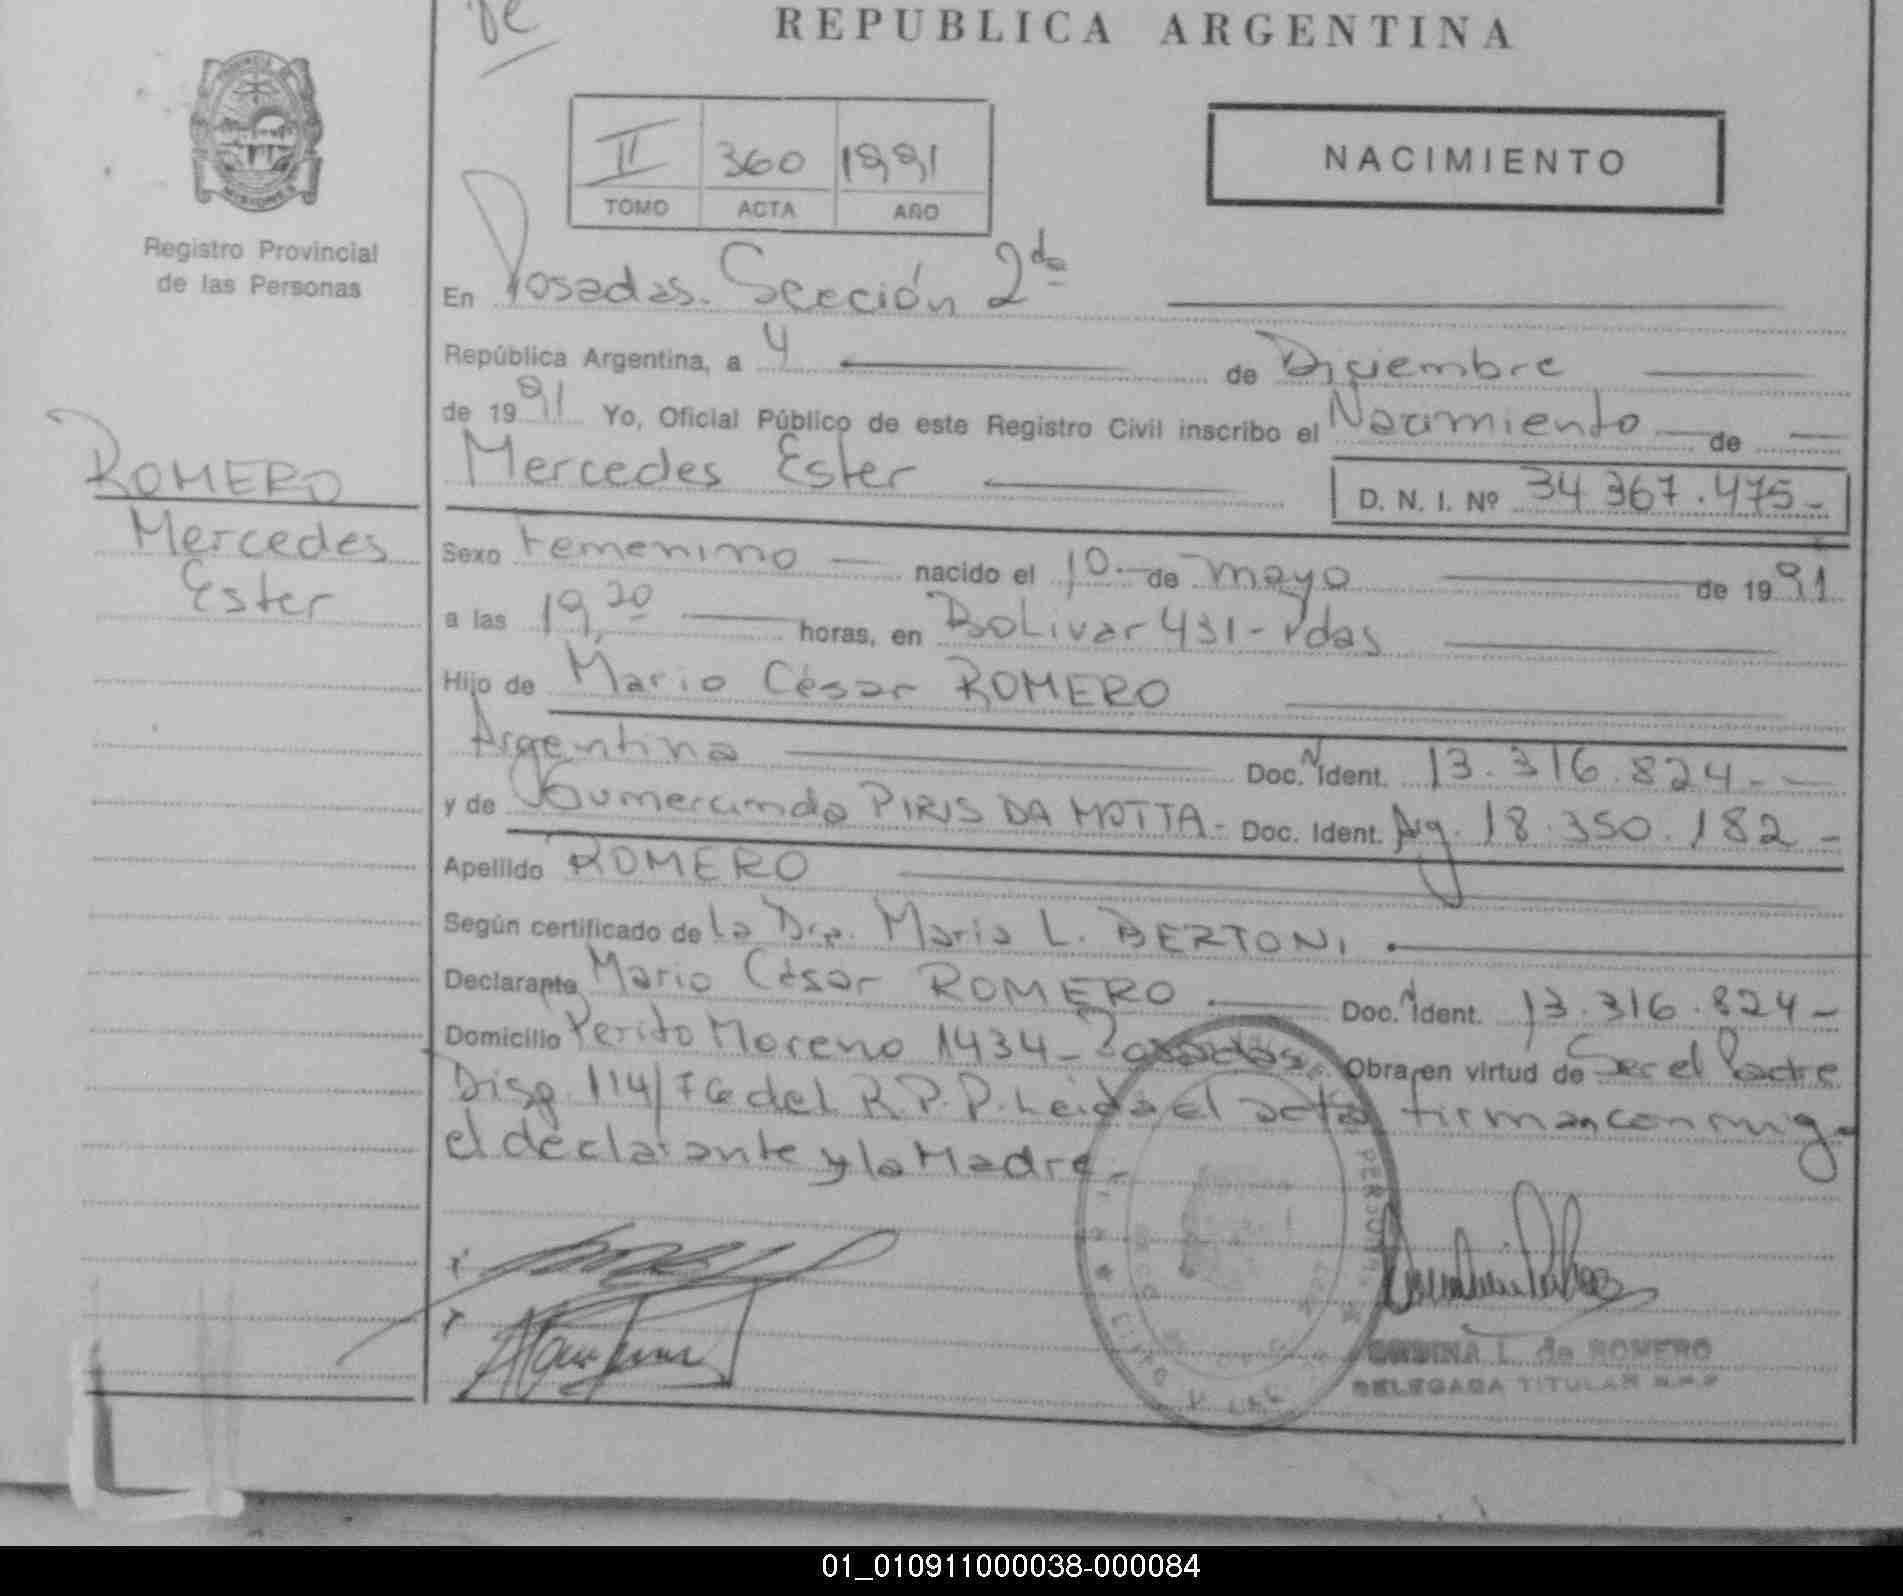 REPUBLICA ARGENTINA
II 360 1991
TOMO ACTA AÑO
NACIMIENTO
Registro Provincial
de las Personas
En Posadas. Sección 2da
República Argentina, a 4 de Diciembre
de 1991 Yo, Oficial Público de este Registro Civil inscribo el Nacimiento de
Mercedes Ester D. N. I. Nº 34 367.475-
ROMERO
Mercedes
Ester
Sexo Femenino nacido el 10 de mayo de 1991
a las 19, horas, en Bolivar 431-Pdas
Hijo de Mario César ROMERO
Argentina Doc. Ident. 13.316.824-
y de Gumercinda PIRIS DA MOTTA- Doc. Ident. Arg. 18.350.182-
Apellido ROMERO
Según certificado de la Dra. Maria L. BERTONI.
Declarante Mario César ROMERO Doc. Ident. 13.316.824-
Domicilio Perito Moreno 1434-Posadas. Obra en virtud de Ser el Padre
Disp. 114/76 del R.P.P. Leida el acta firman conmigo
el declarante y la Madre.-
L. de ROMERO
DELEGADA TITULAR R.P.P
01_010911000038-000084